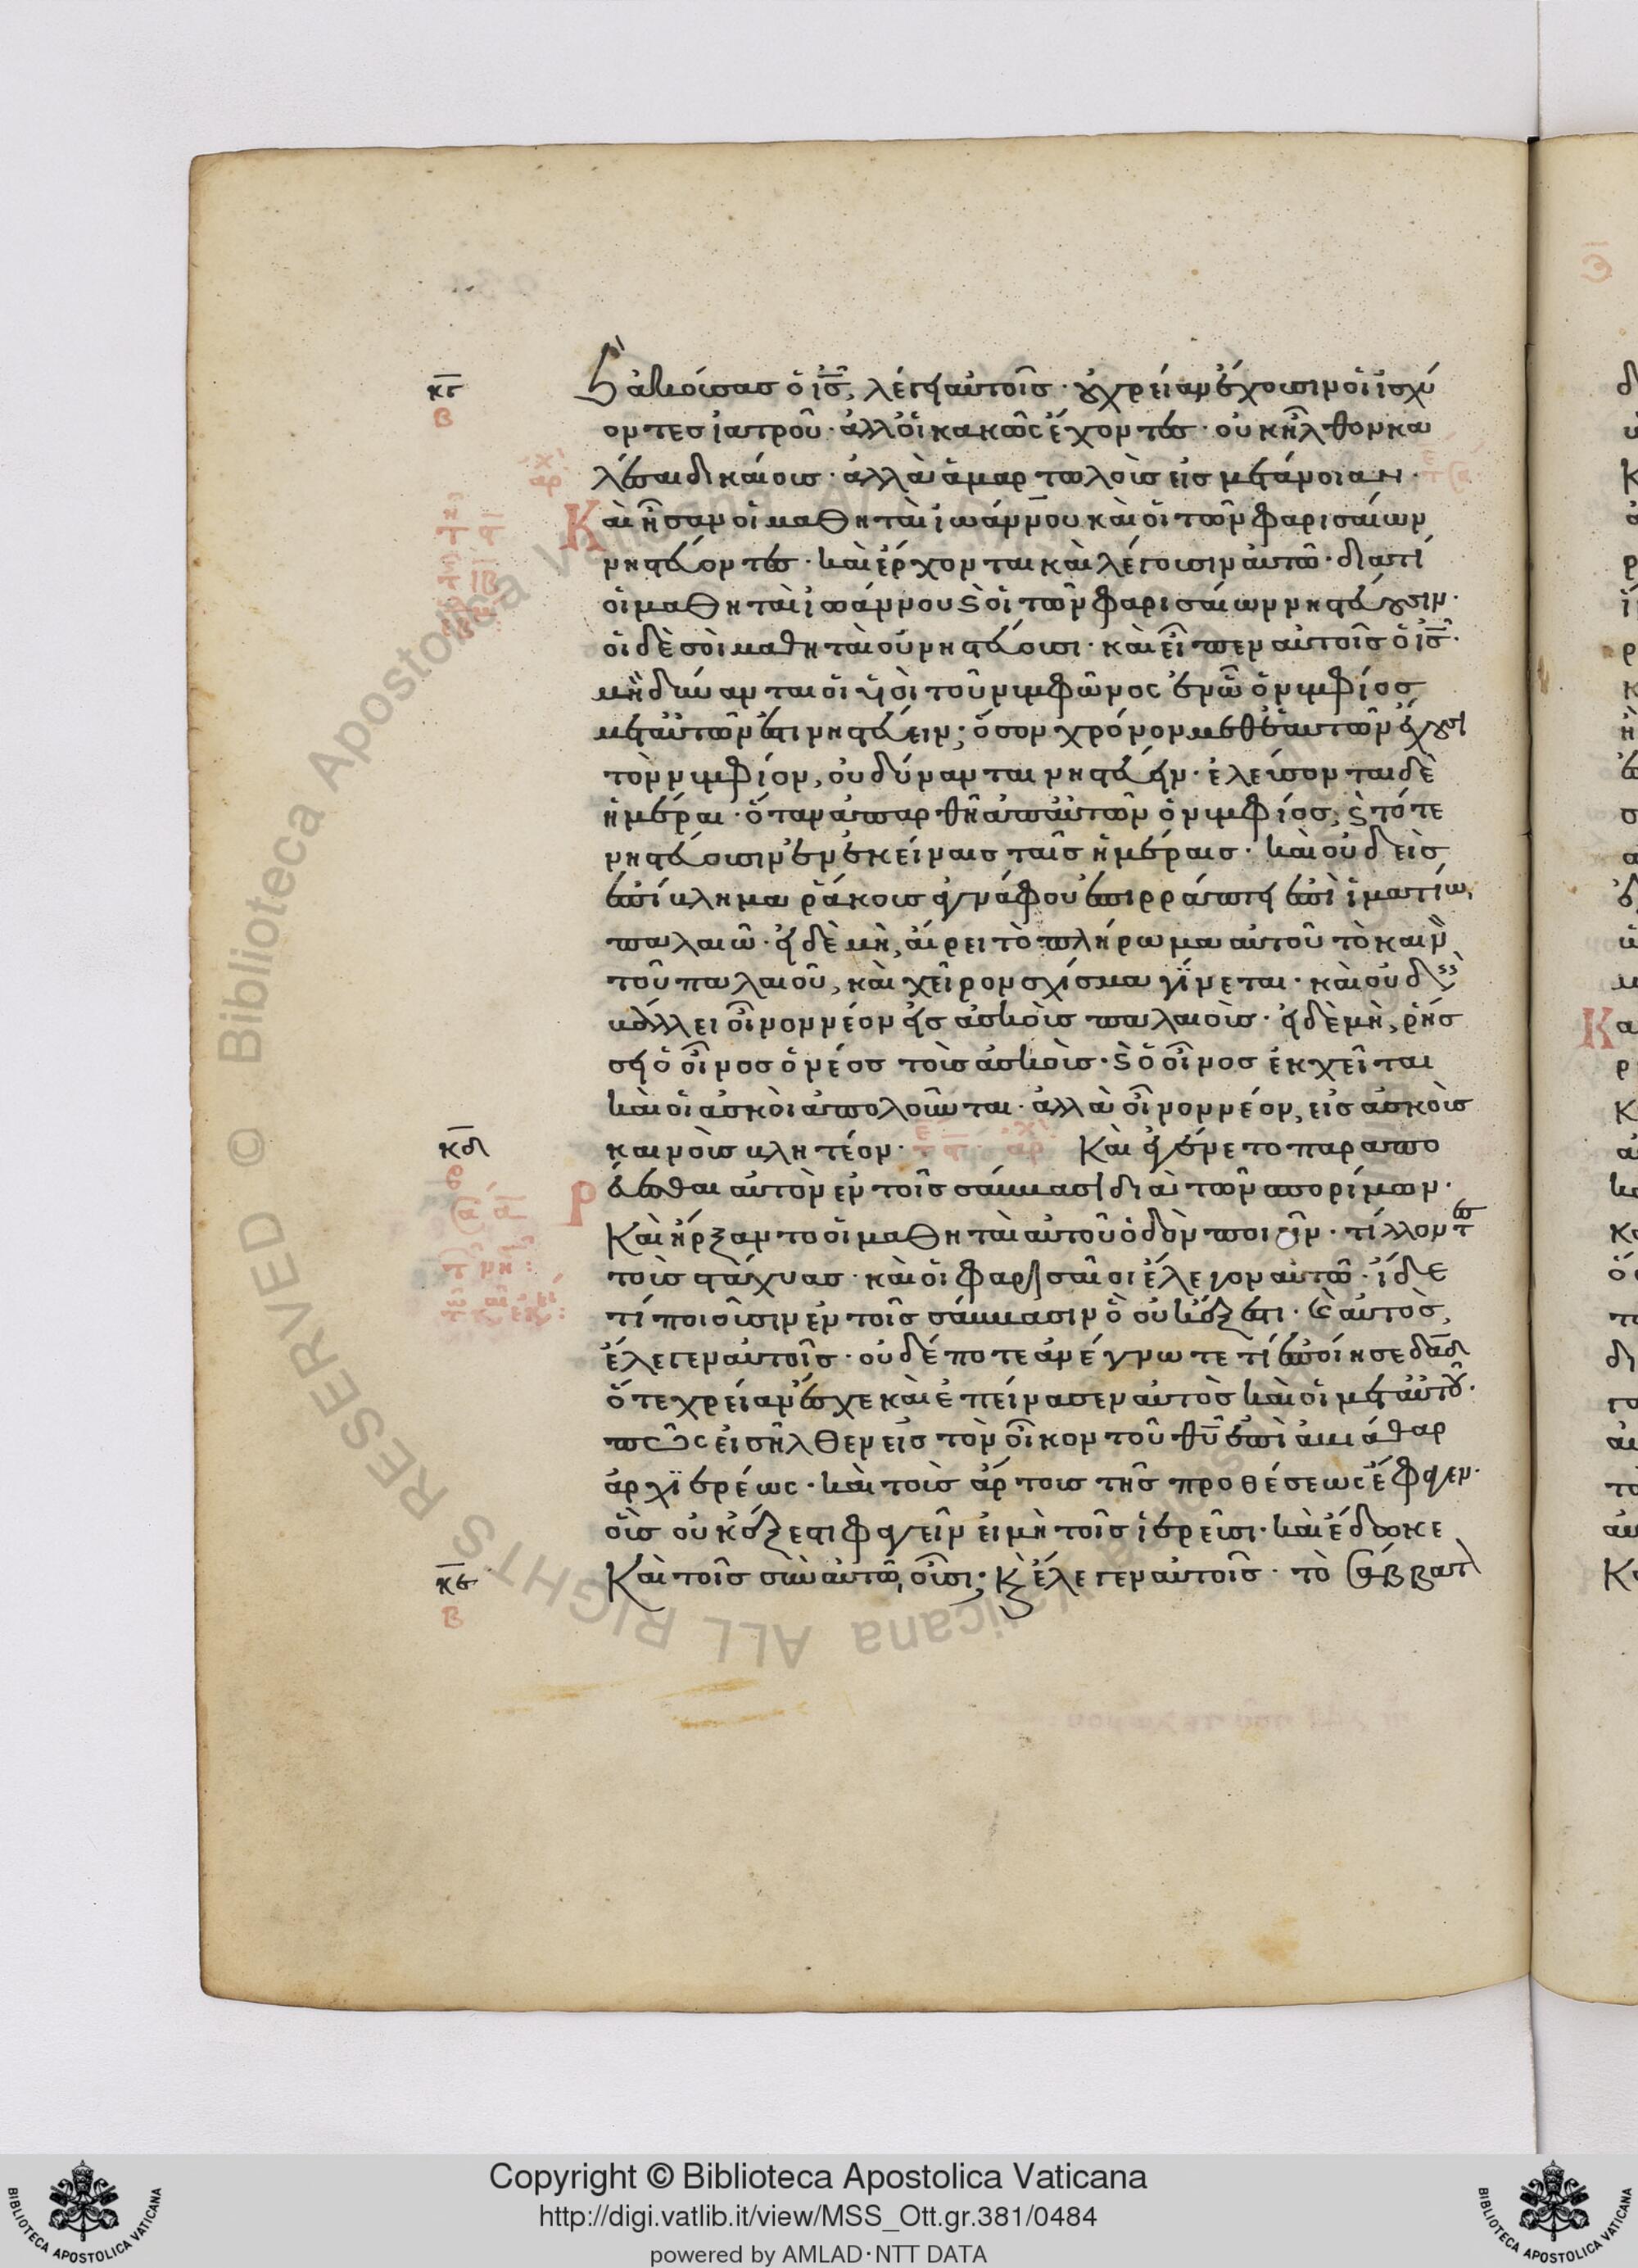 κγ
Β
ϛ ἀκούσας ὁ ις, λέγει αὐτοῖς· οὐ χρείαν ἔχουσιν οἱ ἰσχύ
οντες ἰατροῦ· ἀλλ' οἱ κακῶς ἔχοντες· οὐκ ἦλθον κα
λέσαι δικαίους· ἀλλὰ ἁμαρτωλοὺς εἰς μετάνοιαν·
Καὶ ἦσαν οἱ μαθηταὶ ἰωάννου καὶ οἱ τῶν φαρισαίων
νηστεύοντες· καὶ ἔρχονται καὶ λέγουσιν αὐτῶ· διατί
οἱ μαθηταὶ ἰωάννου ϛ οἱ τῶν φαρισαίων νηστεύουσιν·
οἱ δὲ σοὶ μαθηταὶ οὐ νηστεύουσι· καὶ εἶπεν αὐτοῖς ὁ ις·
μὴ δύνανται οἱ υἱοὶ τοῦ νυμφῶνος ἐν ὧ ὁ νυμφίος
μετ' αὐτῶν ἐστι νηστεύειν; ὅσον χρόνον μεθ' ἑαυτῶν ἔχουσι
τὸν νυμφίον, οὐ δύνανται νηστεύειν· ἐλεύσονται δὲ
ἡμέραι· ὅταν ἀπαρθῆ ἀπ' αὐτῶν ὁ νυμφίος, ϛ τότε
νηστεύουσιν ἐν ἐκείναις ταῖς ἡμέραις· καὶ οὐδεὶς
ἐπίβλημα ῥάκους ἀγνάφου ἐπιρράπτει ἐπὶ ἱματίω
παλαιῶ· εἰ δὲ μὴ, αἴρει τὸ πλήρωμα αὐτοῦ τὸ καιν
τοῦ παλαιοῦ, καὶ χεῖρον σχίσμα γίνεται· καὶ οὐδεὶς
βάλλει οἶνον νέον εἰς ἀσκοὺς παλαιοὺς· εἰ δὲ μὴ, ῥήσ
σει ὁ οἶνος ὁ νέος τοὺς ἀσκοὺς· ϛ ὁ οἶνος ἐκχεῖται
καὶ οἱ ἀσκοὶ ἀπολοῦνται· ἀλλὰ οἶνον νέον, εἰς ἀσκοὺς
κδ
καινοὺς βλητέον· Καὶ ἐγένετο παραπο
ρεύεσθαι αὐτὸν ἐν τοῖς σάββασι διὰ τῶν σπορίμων·
Καὶ ἤρξαντο οἱ μαθηταὶ αὐτοῦ ὁδὸν ποιεῖν· τίλλοντες
τοὺς στάχυας· καὶ οἱ φαρισαῖοι ἔλεγον αὐτῶ· ἴδε
τί ποιοῦσιν ἐν τοῖς σάββασιν ὃ οὐκ ἔξεστι· ϛ αὐτὸς,
ἔλεγεν αὐτοῖς· οὐδέποτε ἀνέγνωτε τί ἐποίησε δαδ
ὅτε χρείαν ἔσχε καὶ ἐπείνασεν αὐτὸς καὶ οἱ μετ' αὐτοῦ·
πῶς εἰσῆλθεν εἰς τὸν οἶκον τοῦ θυ ἐπὶ ἀβιάθαρ
ἀρχιερέως· καὶ τοὺς ἄρτους τῆς προθέσεως ἔφαγεν·
οὓς οὐκ ἔξεστι φαγεῖν εἰ μὴ τοῖς ἱερεῦσι· καὶ ἔδωκε
κε
Β
Καὶ τοῖς σὺν αὐτῶ, οὖσι; Κ ἔλεγεν αὐτοῖς· τὸ σάββατ
Copyright © Biblioteca Apostolica Vaticana
http://digi.vatlib.it/view/MSS_Ott.gr.381/0484
powered by AMLAD·NTT DATA